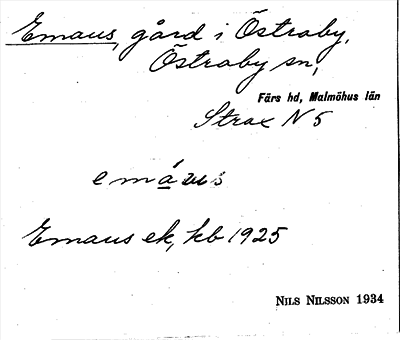 Emaus, gård i Östraby,
Östraby sn,
Färs hd, Malmöhus län
Strax N 5
emáus
Emaus ek, kb 1925
NILS NILSSON 1934